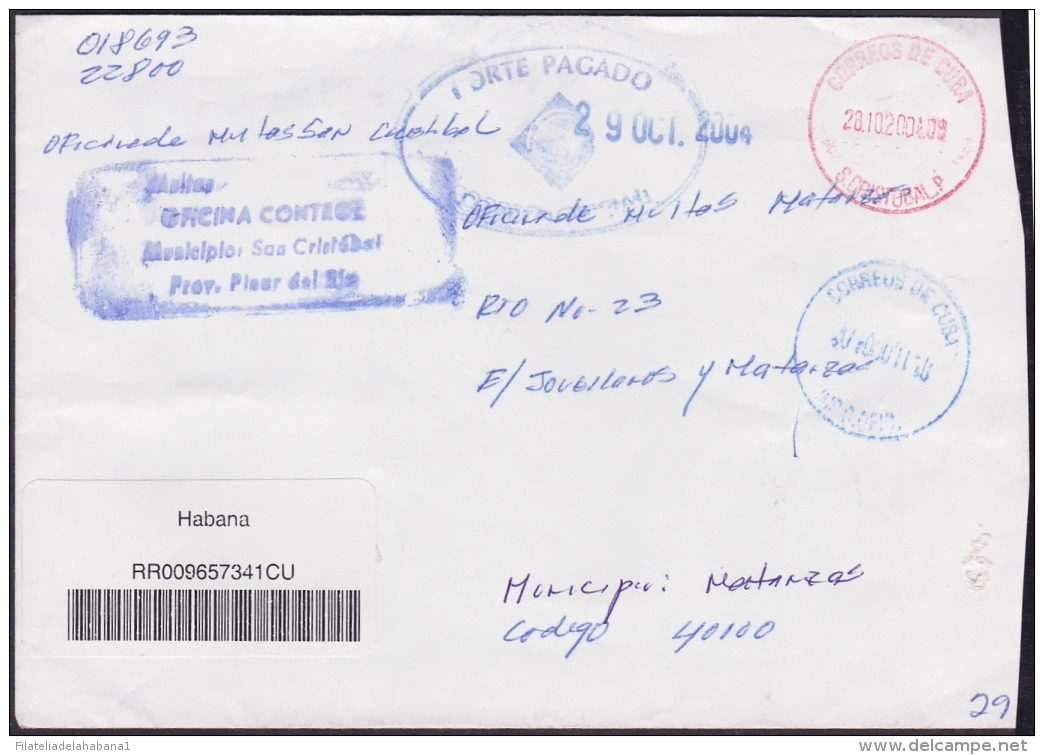 018693
22800
Oficina de Multas San Cristobal
PORTE PAGADO
29 OCT. 2004
CORREOS DE CUBA
28.10.2004
S.CRISTOBAL.P
Multas
OFICINA CONTROL
Municipio: San Cristóbal
Prov. Pinar del Río
Oficina de Multas Matanzas
RIO No-23
E/ Jovellanos y Matanzas
CORREOS DE CUBA
Habana
RR009657341CU
Municipio: Matanzas
Codigo 40100
29
Filateliadelahabana1
www.delcampe.net